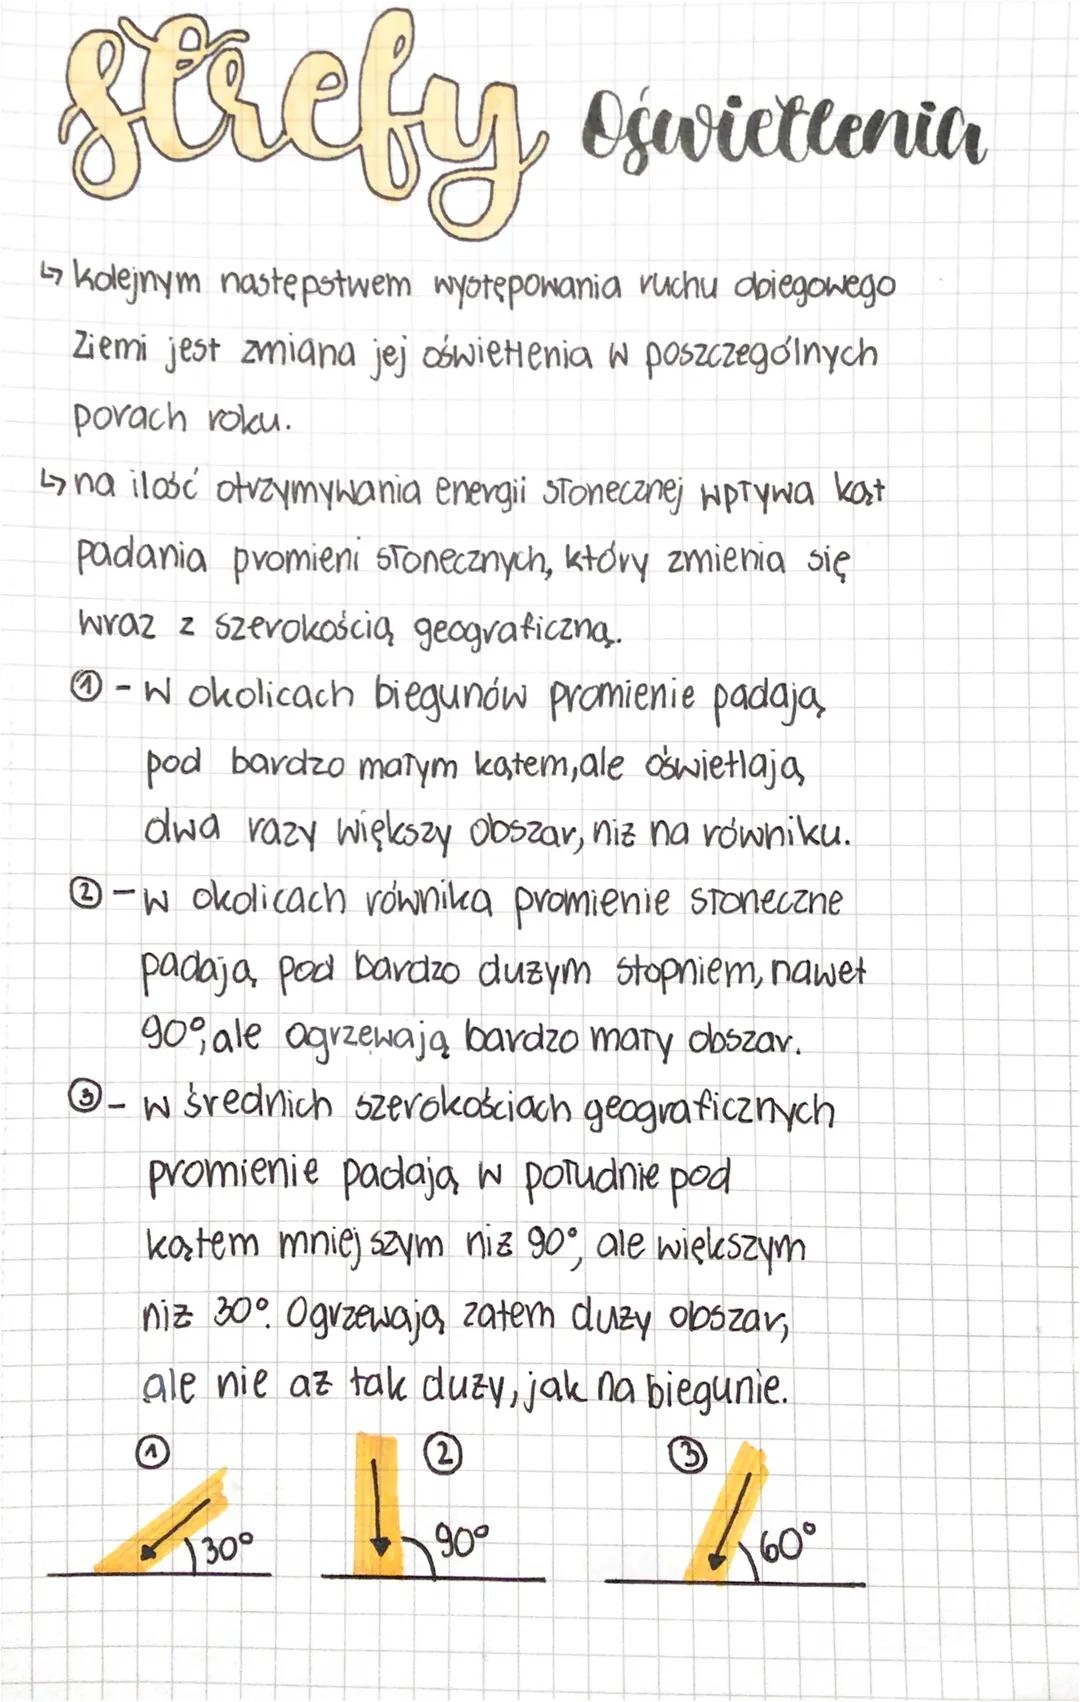 Strefy Oświetlenia
↳ kolejnym następstwem występowania ruchu obiegowego
Ziemi jest zmiana jej oświetlenia w poszczególnych
porach roku.
↳ na ilość otrzymywania energii słonecznej wpływa kąt
padania promieni słonecznych, który zmienia się
wraz z szerokością geograficzną.
① - w okolicach biegunów promienie padają
pod bardzo małym kątem, ale oświetlają
dwa razy większy obszar, niż na równiku.
② - w okolicach równika promienie słoneczne
padają pod bardzo dużym stopniem, nawet
90°, ale ogrzewają bardzo mały obszar.
③ - w średnich szerokościach geograficznych
promienie padają w południe pod
kątem mniejszym niż 90°, ale większym
niż 30°. Ogrzewają zatem duży obszar,
ale nie aż tak duży, jak na biegunie.
① ② ③
30° 90° 60°